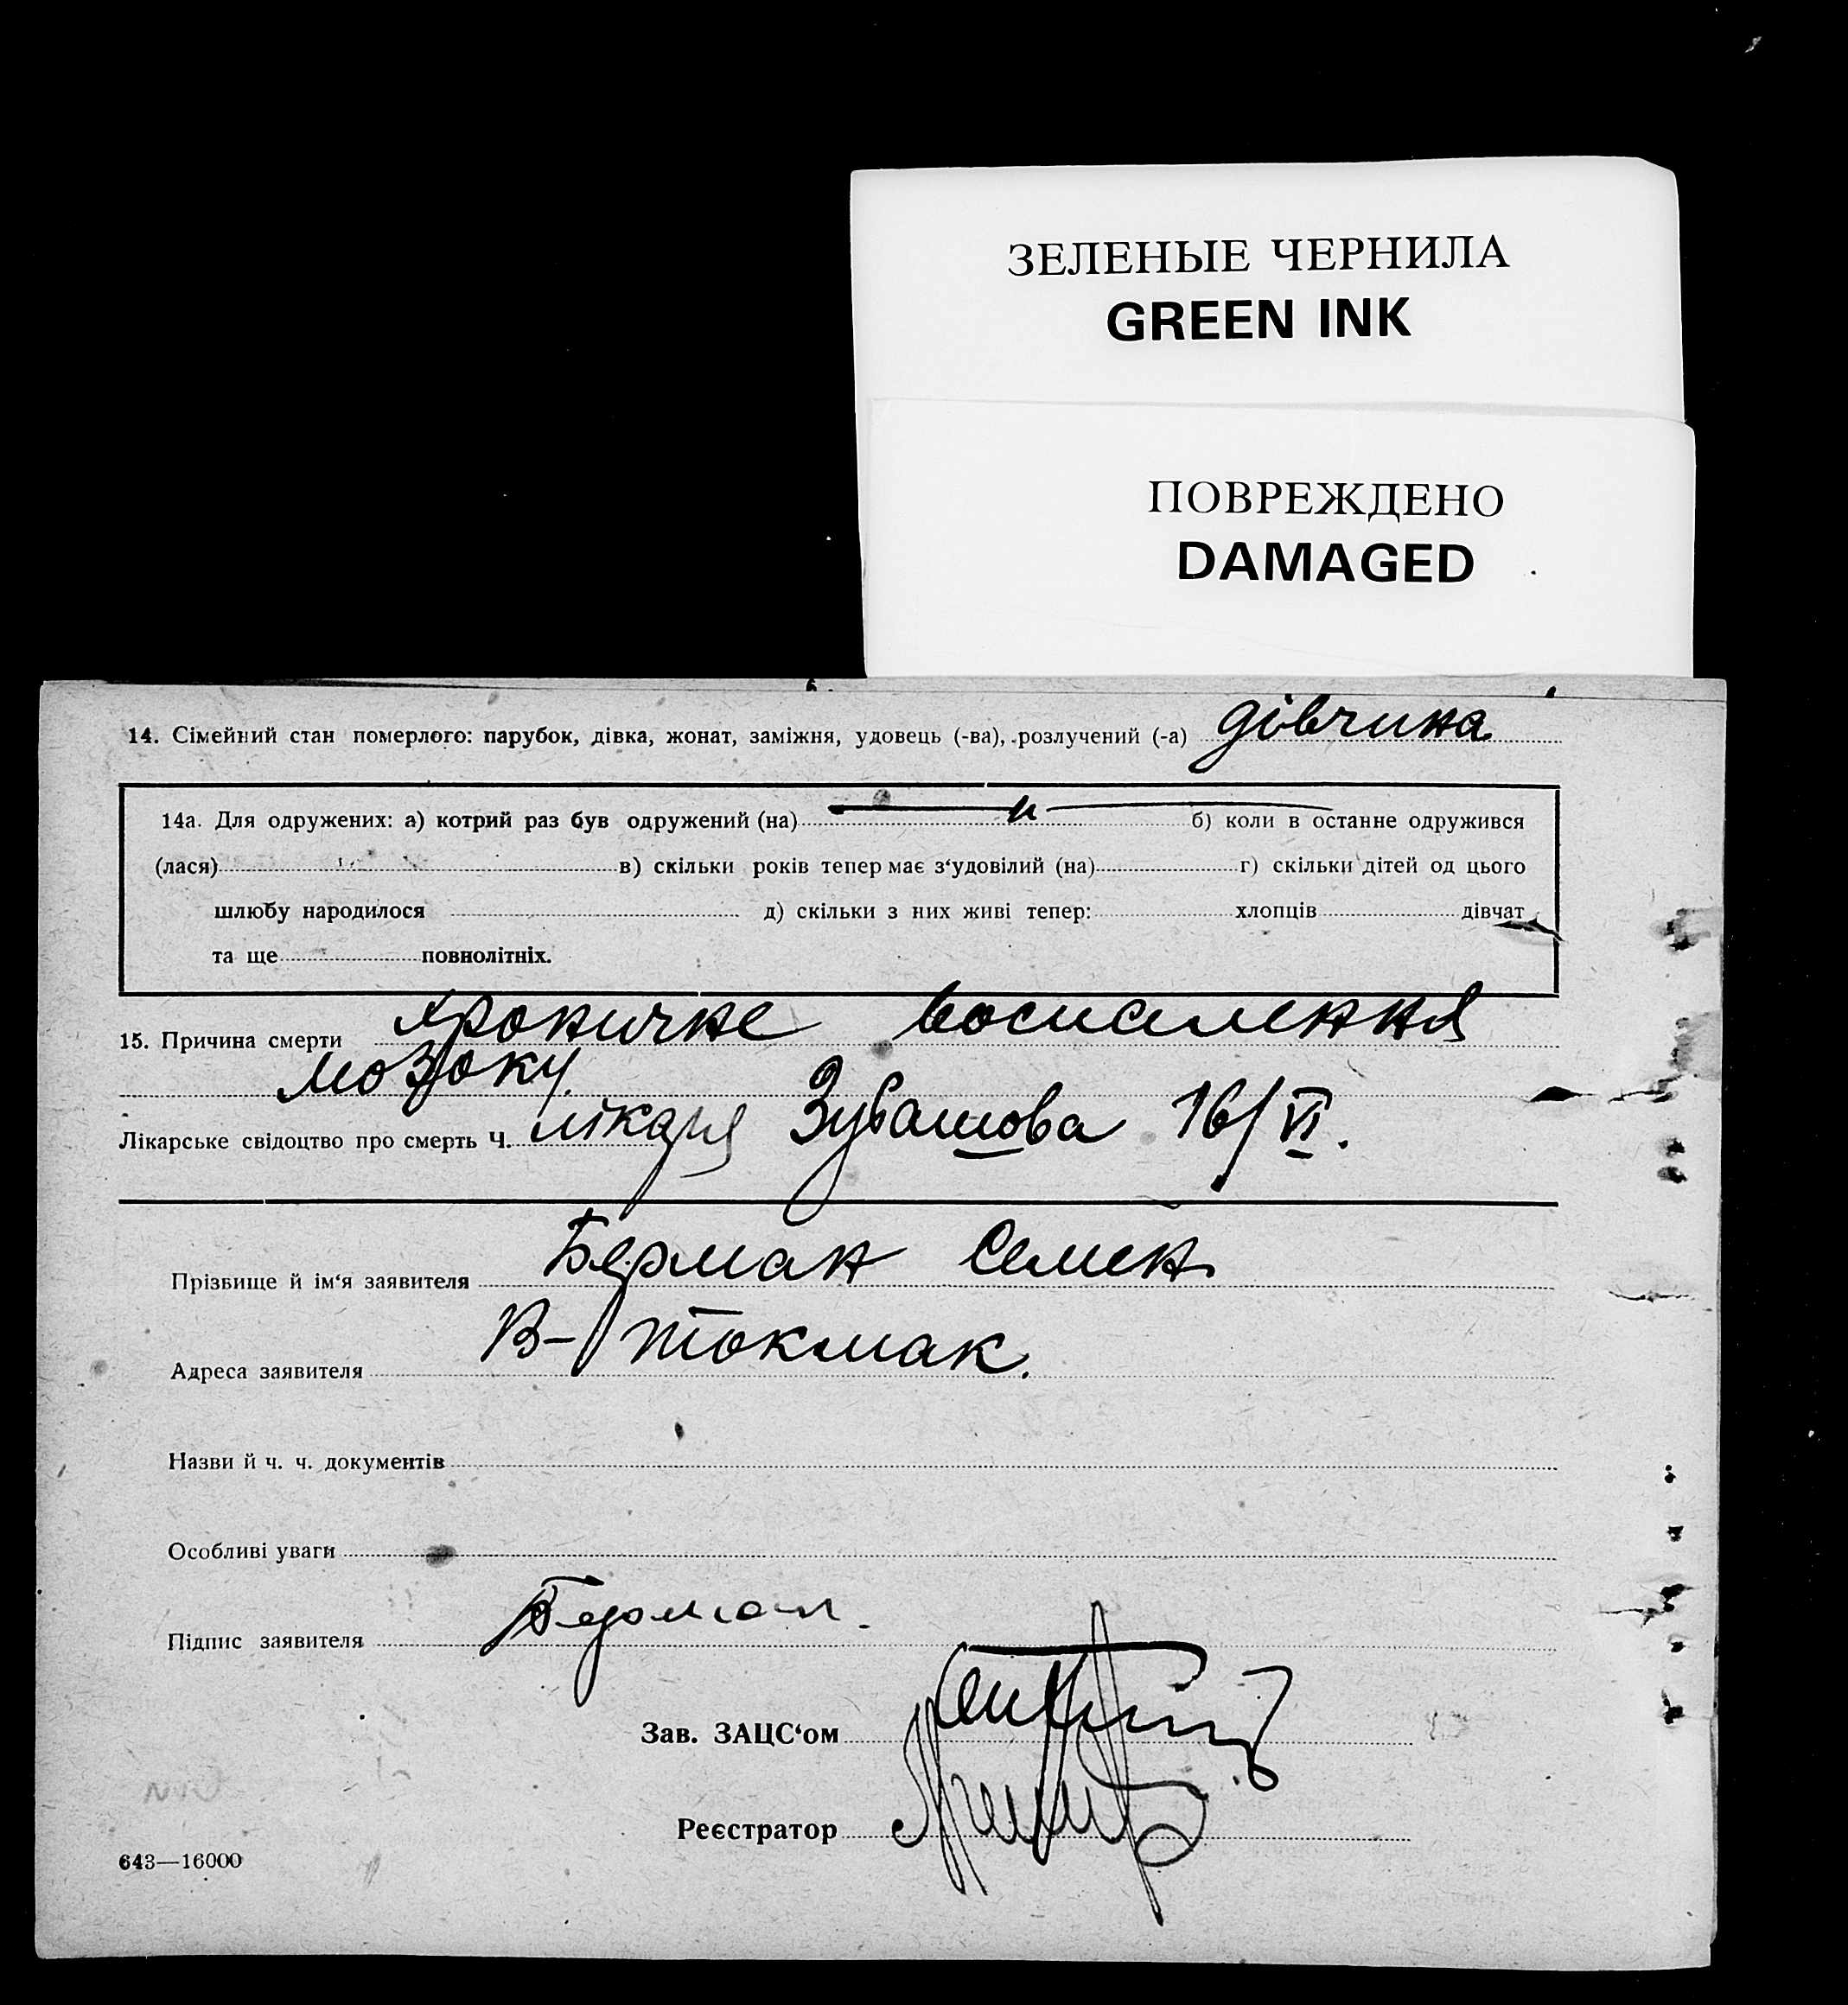 ЗЕЛЕНЫЕ ЧЕРНИЛА
GREEN INK
ПОВРЕЖДЕНО
DAMAGED
14. Сімейний стан померлого: парубок, дівка, жонат, заміжня, удовець (-ва), розлучений (-а) дівчина
14а. Для одружених: а) котрий раз був одружений (на) б) коли в останнє одружився
(лася) в) скільки років тепер має з‘удовілий (на) г) скільки дітей од цього
шлюбу народилося д) скільки з них живі тепер: хлопців дівчат
та ще повнолітніх.
15. Причина смерти хроничне воспаления
мозоку
Лікарське свідоцтво про смерть Ч. лікаря Зубашова 16/VI.
Прізвище й ім‘я заявителя Берман Семен
Адреса заявителя В-Токмак.
Назви й ч. ч. документів
Особливі уваги
Підпис заявителя Берман
Зав. ЗАЦС‘ом
Реєстратор
643—16000